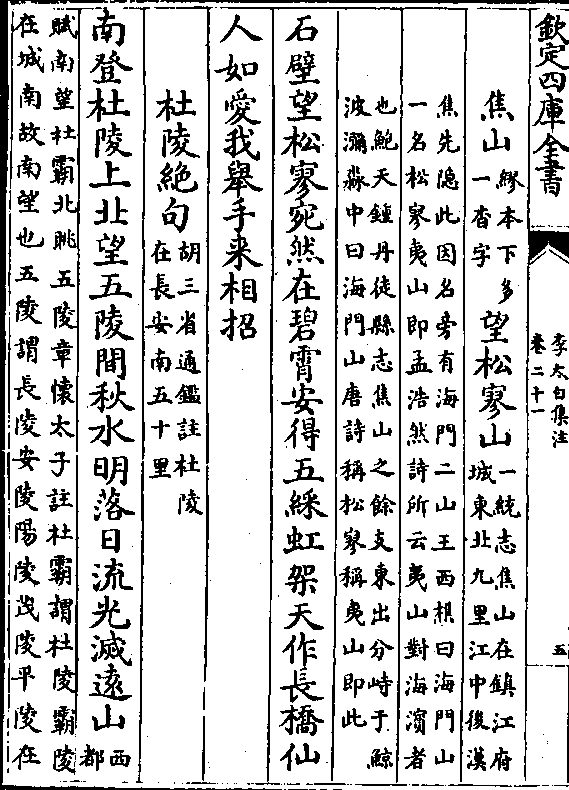 欽定四庫全書
李太白集注
卷二十一
五
焦山
繆本下多
一杳字
望松寥山
一統志焦山在鎮江府
城東北九里江中後漢
焦先隐此因名旁有海門二山王西樵曰海門山
一名松寥夷山即孟浩然詩所云夷山對海濵者
也鮑天鍾丹徒縣志焦山之餘支東出分峙于鯨
波瀰淼中曰海門山唐詩稱松寥稱夷山即此
石壁望松寥宛然在碧霄安得五綵虹架天作長橋仙
人如愛我舉手来相招
杜陵絶句
胡三省通鑑註杜陵
在長安南五十里
南登杜陵上北望五陵間秋水明落日流光滅遠山
西
都
賦南望杜霸北眺五陵章懷太子註杜霸謂杜陵霸陵
在城南故南望也五陵謂長陵安陵陽陵茂陵平陵在